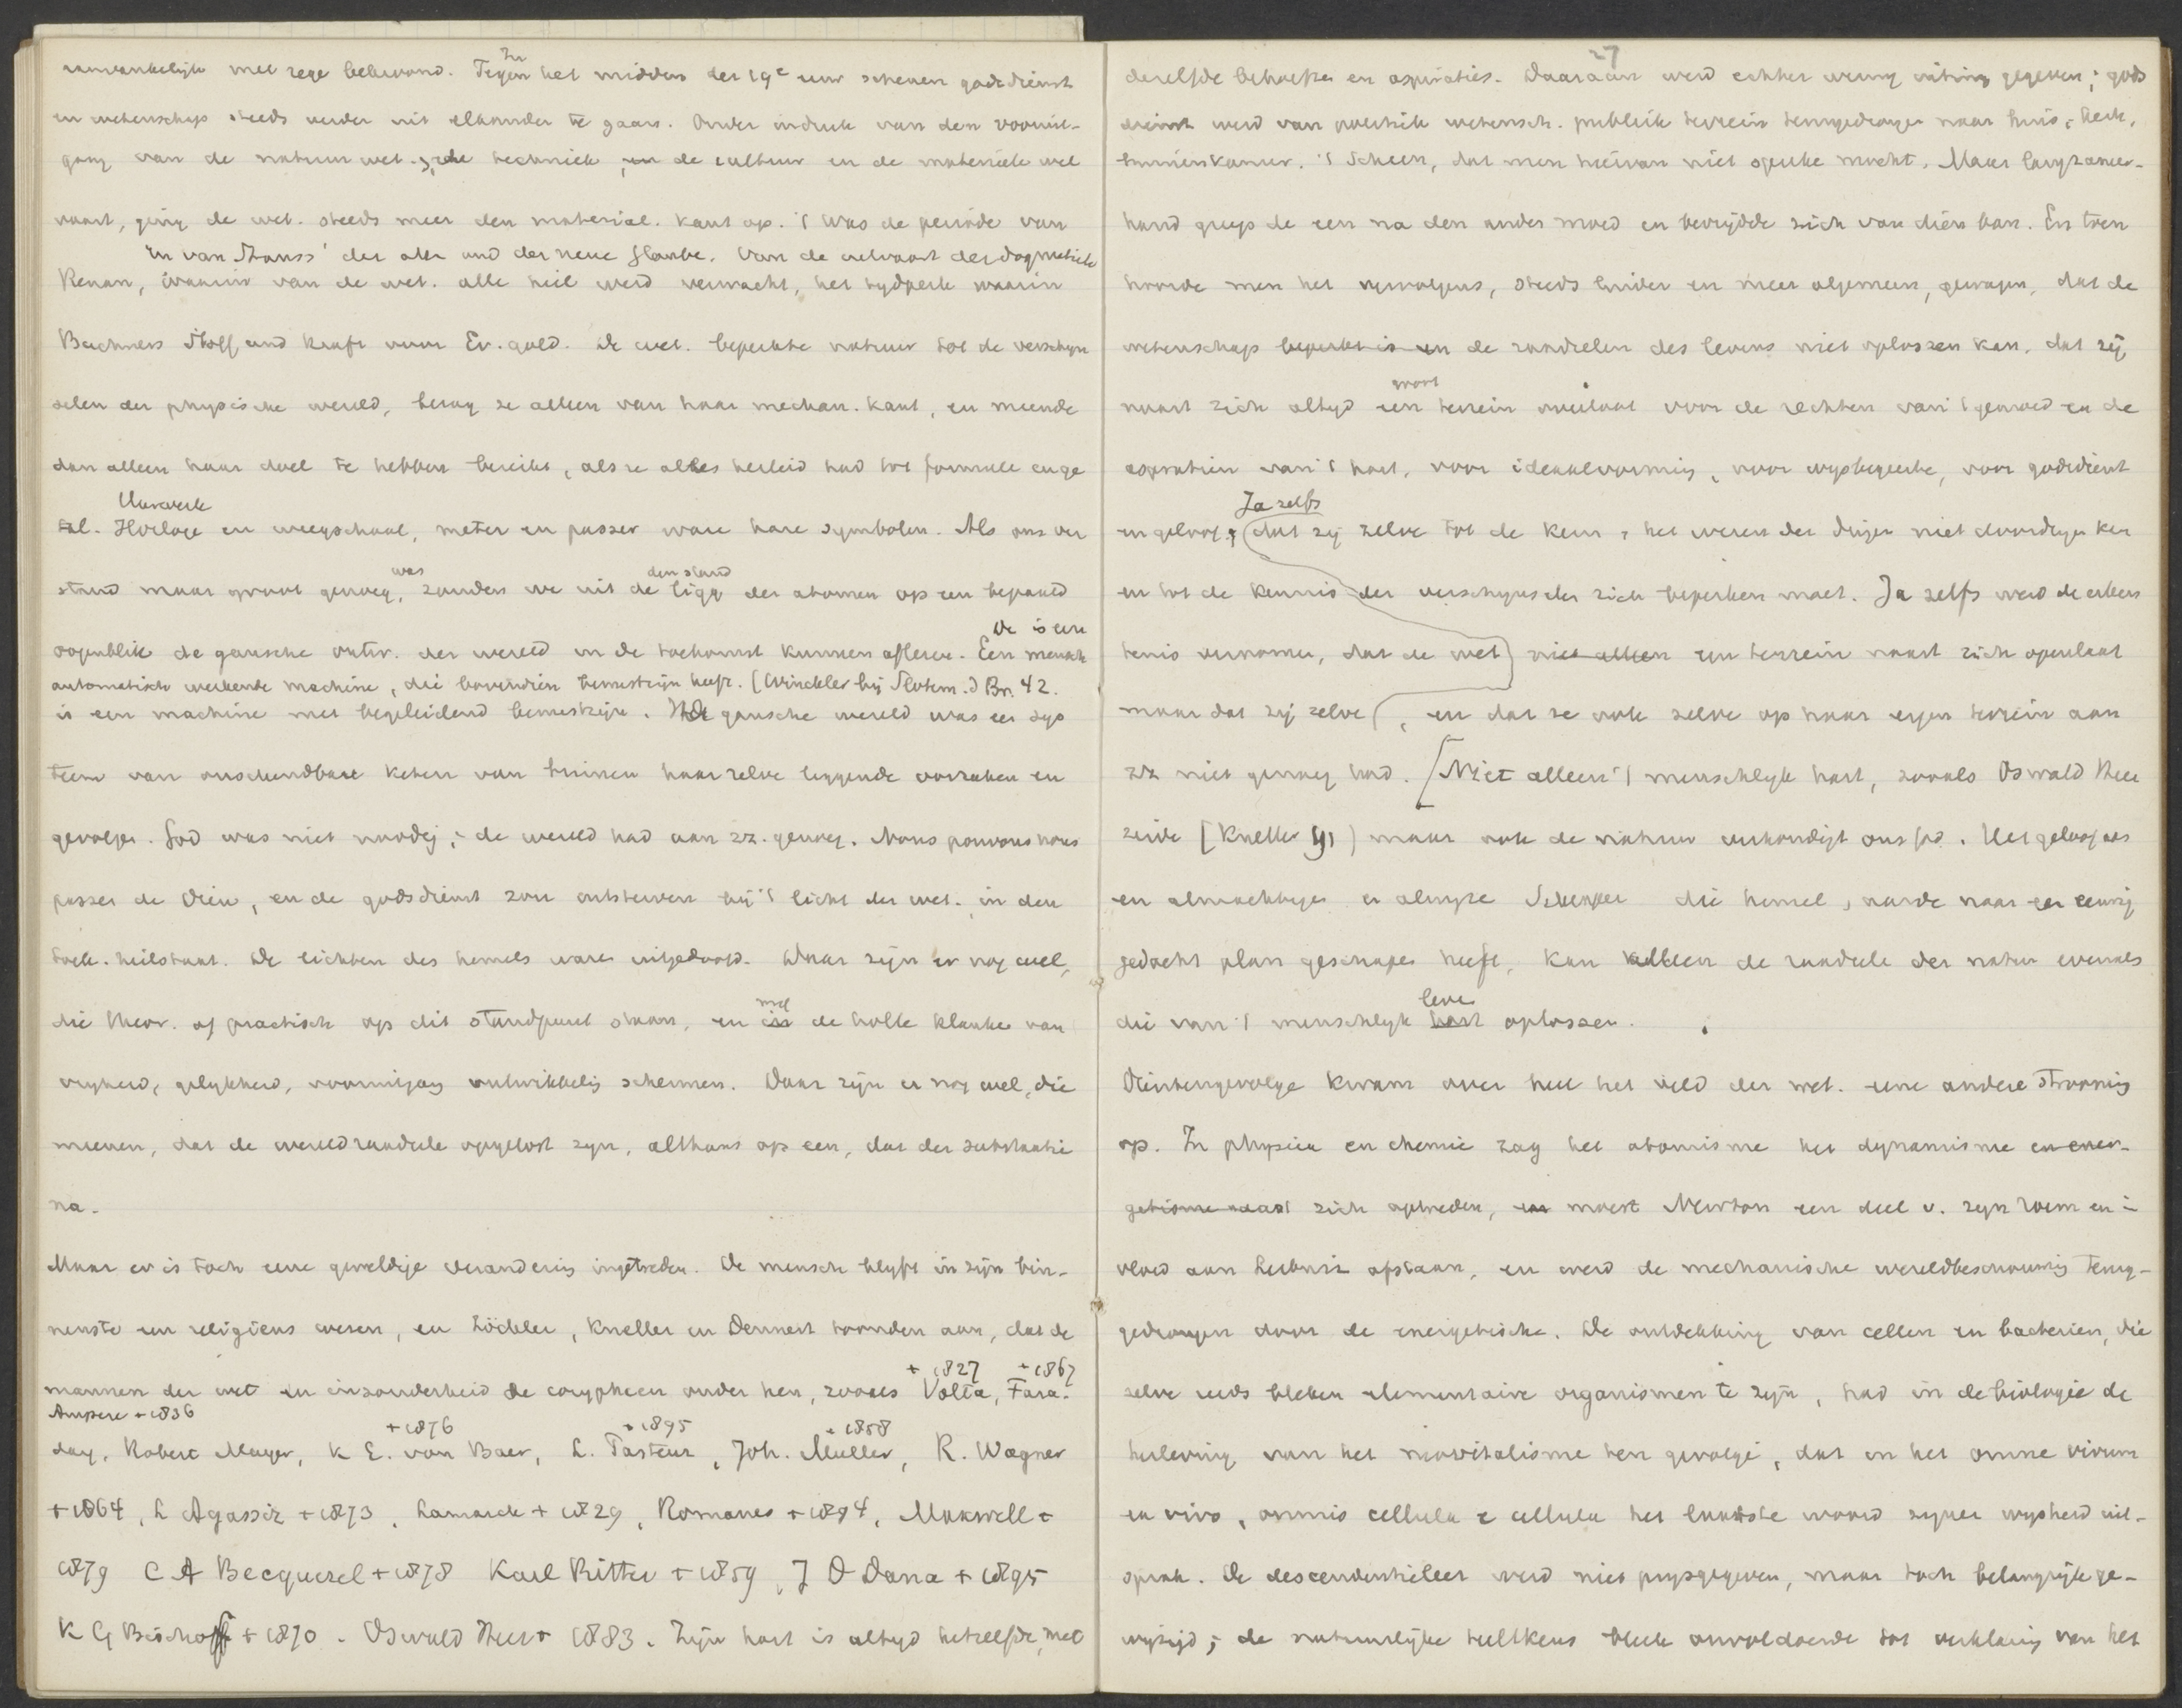 aanvankelijk met zege bekroond. Tegen In het midden der 19e eeuw schenen godsdienst
en wetenschap steeds verder uit elkander te gaan. Onder indruk van den vooruit-
gang van de natuurwet., de techniek, en de cultuur en de materieele wel
vaart, ging de wet. steeds meer den material. kant op. 't Was de periode van
en van Strauss' der alte und der neue Glaube. Van de uitvaart der dogmatiek
Renan, waarin van de wet. alle heil werd verwacht, het tydperk waarin
Buchners Stoff und Kraft voor Ev. gold. De wet. beperkte natuur tot de verschyn
selen der physische wereld, bezag ze alleen van haar mechan. kant, en meende
dan alleen haar doel te hebben bereikt, als ze alles herleid had tot formule en ge
Uurwerk
tal. Horloge en weegschaal, meter en passer ware hare symbolen. Als ons ver
was den stand
stand maar groot genoeg, zouden we uit de ligg der atomen op een bepaald
De is een
oogenblik de gansche ontw. der wereld in de toekomst kunnen aflezen. Een mensch
automatisch werkende machine, die bovendien bewustzijn heeft. (Winckler bij Slotem.) Br. 42.
is een machine met begeleidend bewustzijn. De gansche wereld was een sys
teem van onschendbare keten van binnen haar zelve liggende oorzaken en
gevolgen. God was niet noodig; de wereld had aan zz. genoeg. Nous pouvons nous
passer de Dieu, en de godsdienst zou uitsterven bij 't licht der wet. in den
toek. heilstaat. De lichten des hemels waren uitgedoofd. Daar zijn er nog wel,
die theor. of practisch op dit standpunt staan, en met in de holle klanken van
vryheid, gelykheid, vooruitgang ontwikkeling schermen. Daar zijn er nog wel, die
meenen, dat de wereldraadsels opgelost zyn, althans op een, dat der substantie
na.
Maar er is toch eene geweldige verandering ingetreden. De mensch blyft in zijn bin-
nenste een religieus wezen, en Zöckler, Kneller en Dennert toonden aan, dat de
+ 1827 + 1867
mannen der wet en inzonderheid de corypheen onder hen, zooals Volta, Fara-
Ampere + 1836
+ 1876 + 1895 + 1858
day, Robert Mayer, K E. von Baer, L. Pasteur, Joh. Muller, R. Wagner
+ 1864, L Agassiz + 1873, Lamarck + 1829, Romanes + 1894, Maxwell +
1879 C A Becquerel + 1878 Karl Ritter + 1859, J D Dana + 1895
K G Bischoff + 1870. Oswald Heer + 1883. Zijn hart is altyd hetzelfde, met
27
dezelfde behoeften en aspiraties. Daaraan werd echter weinig uiting gegeven; gods
dienst werd van politiek wetensch. publiek terrein teruggedrongen naar huis, kerk,
binnenkamer. 't Scheen, dat men hiervan niet spreke mocht. Maar langzamer-
hand greep de een na den ander moed en bevrydde zich van dien ban. En toen
hoorde men het vervolgens, steeds luider en meer algemeen, gewagen, dat de
wetenschap beperkt is en de raadselen des levens niet oplossen kan, dat zij
groot
naast zich altyd een terrein overlaat voor de rechten van 't gemoed en de
aspiratien van 't hart, voor ideaalvorming, voor wysbegeerte, voor godsdienst
Ja zelfs
en geloof; dat zij zelve tot de kern, het wezen der dingen niet doordringen kan
en tot de kennis der verschynselen zich beperken moet. Ja zelfs werd de erken
tenis vernomen, dat de wet niet alleen een terrein naast zich openlaat
maar dat zij zelve, en dat ze ook zelve op haar eigen terrein aan
zz niet genoeg had. [Niet alleen 't menschelyk hart, zooals Oswald Heer
zeide (Kneller 91) maar ook de natuur verkondigt ons God. Het geloof aan
een almachtige en alwyze Schepper die hemel, aarde naar een eeuwig
gedacht plan geschapen heeft, kan alleen de raadsels der natuur evenals
leven
die van 't menschelyk hart oplossen.
Dientengevolge kwam over heel het veld der wet. eene andere strooming
op. In physica en chemie zag het atomisme het dynamisme en ener-
getisme naast zich optreden, en moest Newton een deel v. zyn roem en in
vloed aan Leibniz afstaan, en werd de mechanische wereldbeschouwing terug-
gedrongen door de energetische. De ontdekking van cellen en bacterien, die
zelve reeds bleken elementaire organismen te zijn, had in de biologie de
herleving van het neovitalisme ten gevolge, dat in het omne vivum
ex vivo, omnis cellula e cellula het laatste woord zyner wysheid uit-
sprak. De descendentieleer werd niet prysgegeven, maar toch belangrijk ge-
wyzigd; de natuurlijke teeltkeus bleek onvoldoende tot verklaring van het